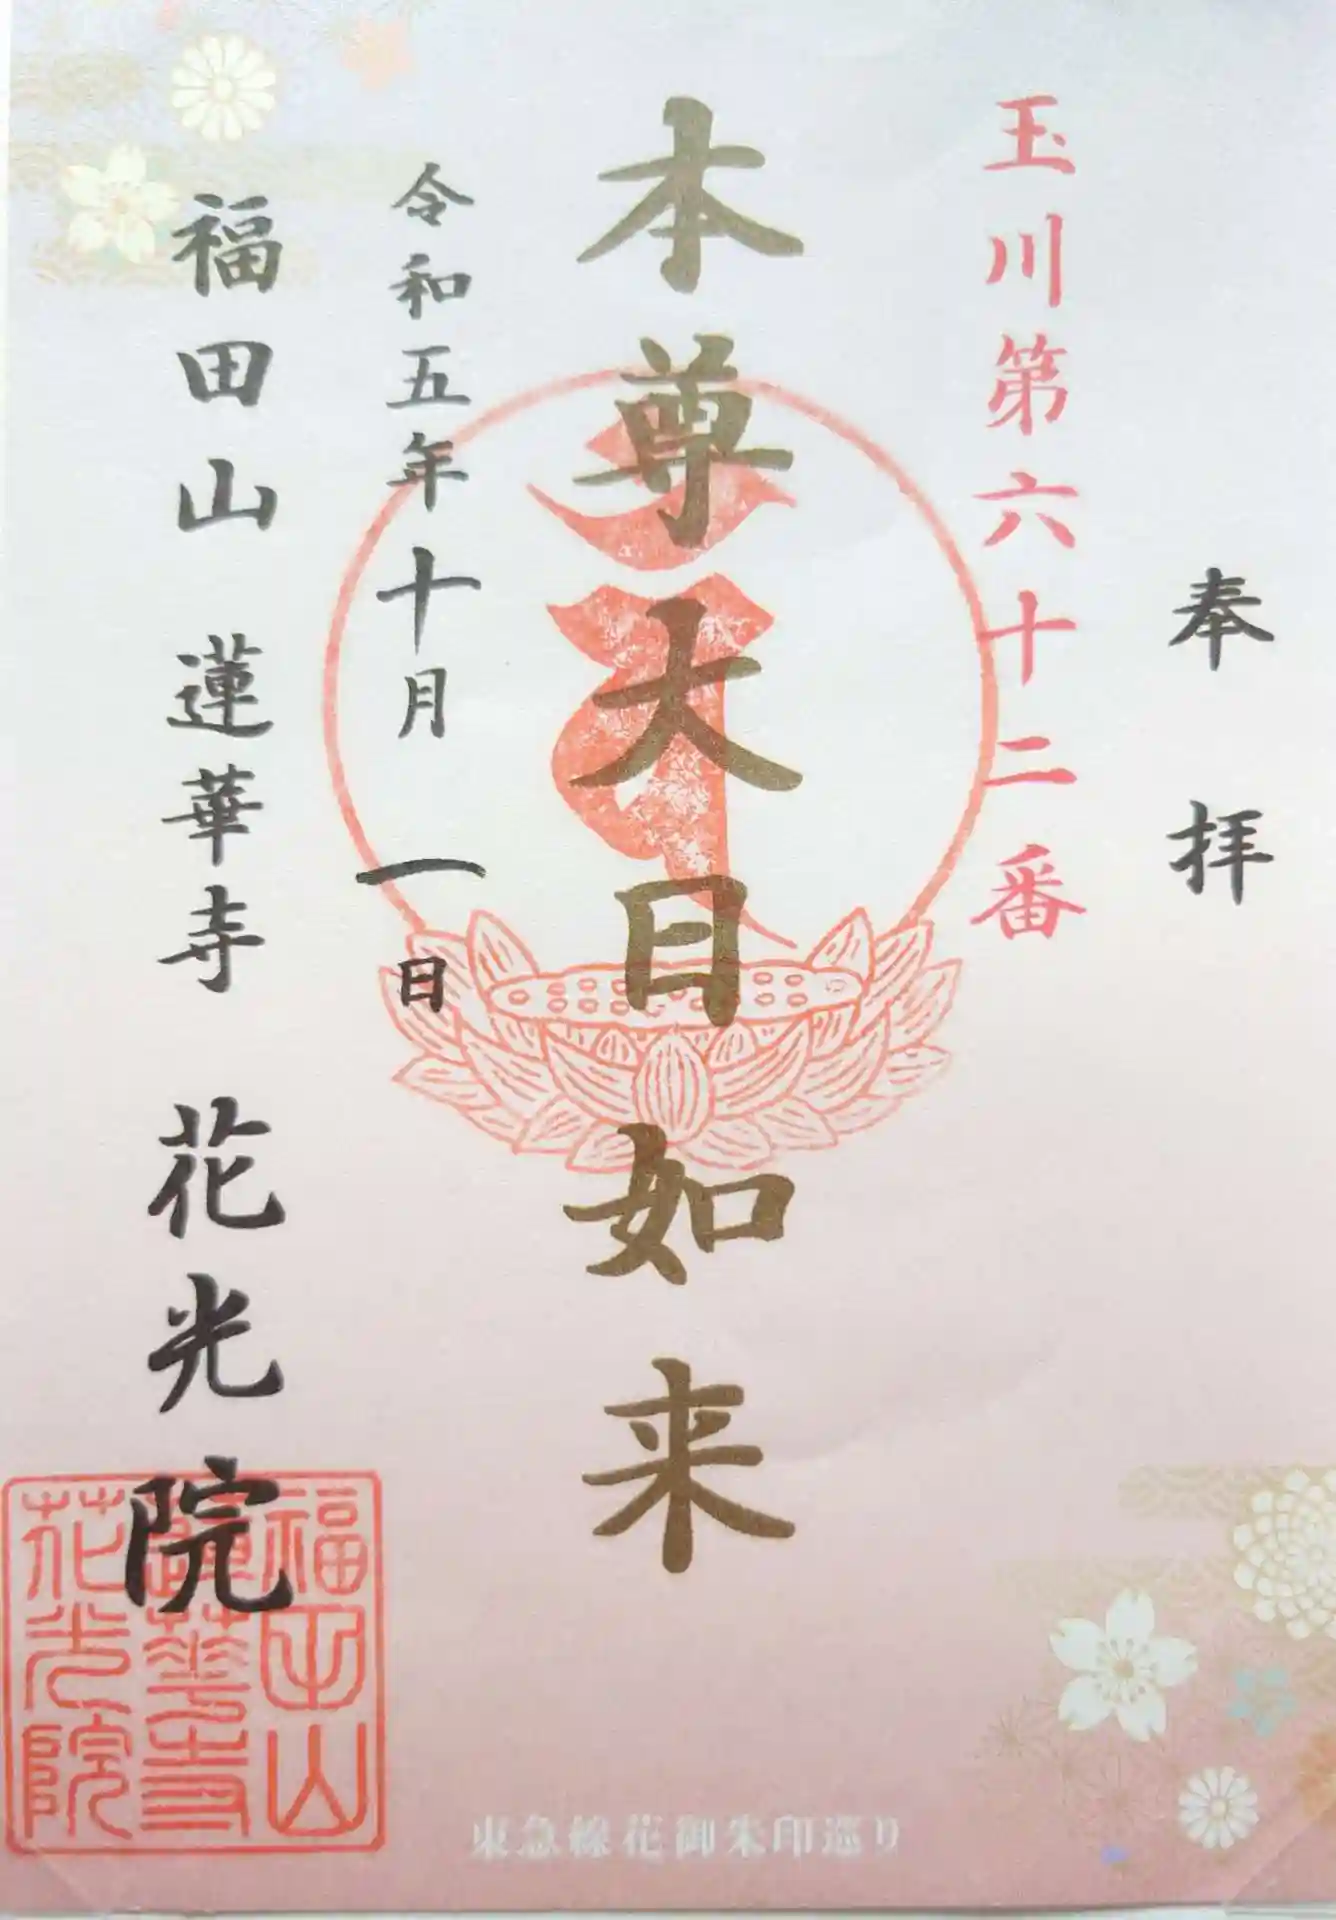 奉拝
玉川第六十二番
本尊大日如来
令和五年十月一日
福田山 蓮華寺 花光院
福田山
蓮華寺
花光院
東急線花御朱印巡り